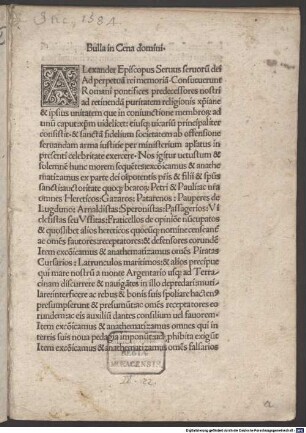 2° Inc. 1581
Bulla in Cena domini.
ALexander Episcopus Seruus seruorũ dei
Ad perpetuã rei memoriã Consueuerunt
Romani pontifices predecessores nostri
ad retinendã puritatem religionis xp̃iane
& ipsius unitatem que in coniunctione membrorũ ad
unũ caput xp̃m uidelicet eiusq; uicariũ principaliter
consistit: & sanctã fidelium societatem ab offensione
seruandam arma iustitie per ministerium aplatus in
presenti celebritate exercere. Nos igitur uetustum &
solemnẽ hunc morem sequẽtes excõicamus & anathe
matizamus ex parte dei oĩpotentis pr̃is & filii & spũs
sancti auctoritate quoq; beatorũ Petri & Pauli ac nr̃a
omnes Hereticos: Gazaros: Patarenos: Pauperes de
Lugduno: Arnaldistas: Speronistas: Passagerios: Vi
cleuistas seu Vssitas: Fraticellos de opinióe nũcupatos
& quoslibet alios hereticos quocũq; nomine censeanť
ac omẽs fautores receptatores: & defensores eorundẽ
Item excõicamus & anathematizamus omẽs Piratas
Cursarios: Latrunculos maritimos: & alios precipue
qui mare nostrũ a monte Argentario usq; ad Terra
cinam discurrere & nauigãtes in illo depredari muti
lare interficere ac rebus & bonis suis spoliare hactenꝰ
presumpserunt & presumũt: ac omẽs receptatores eo
rundem: ac eis auxiliũ dantes consilium uel fauorem:
Item excõicamus & anathematizamus omnes qui in
terris suis noua pedagia imponũt uel prohibita exigũt
Item excõicamus & anathematizamus omẽs falsarios
a